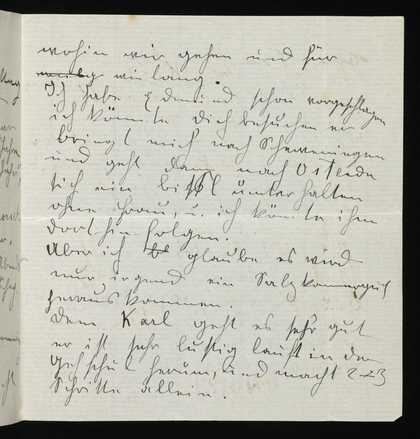 wohin wir gehen und für
wie lang.
Ich habe Edmund schon vorgeschlagen
ich könnte Dich besuchen er
bringt mich nach Scheveningen
und geht dann nach Ostende
sich ein bissl unterhalten
ohne u. ich könnte ihm
dorthin folgen.
Aber ich glaube es wird
nur irgend ein Salzkammergut
herauskommen.
Dem Karl geht es sehr gut
er ist sehr lustig lauft in dem
Gehschul herum, und macht 2-3
Schritte allein.